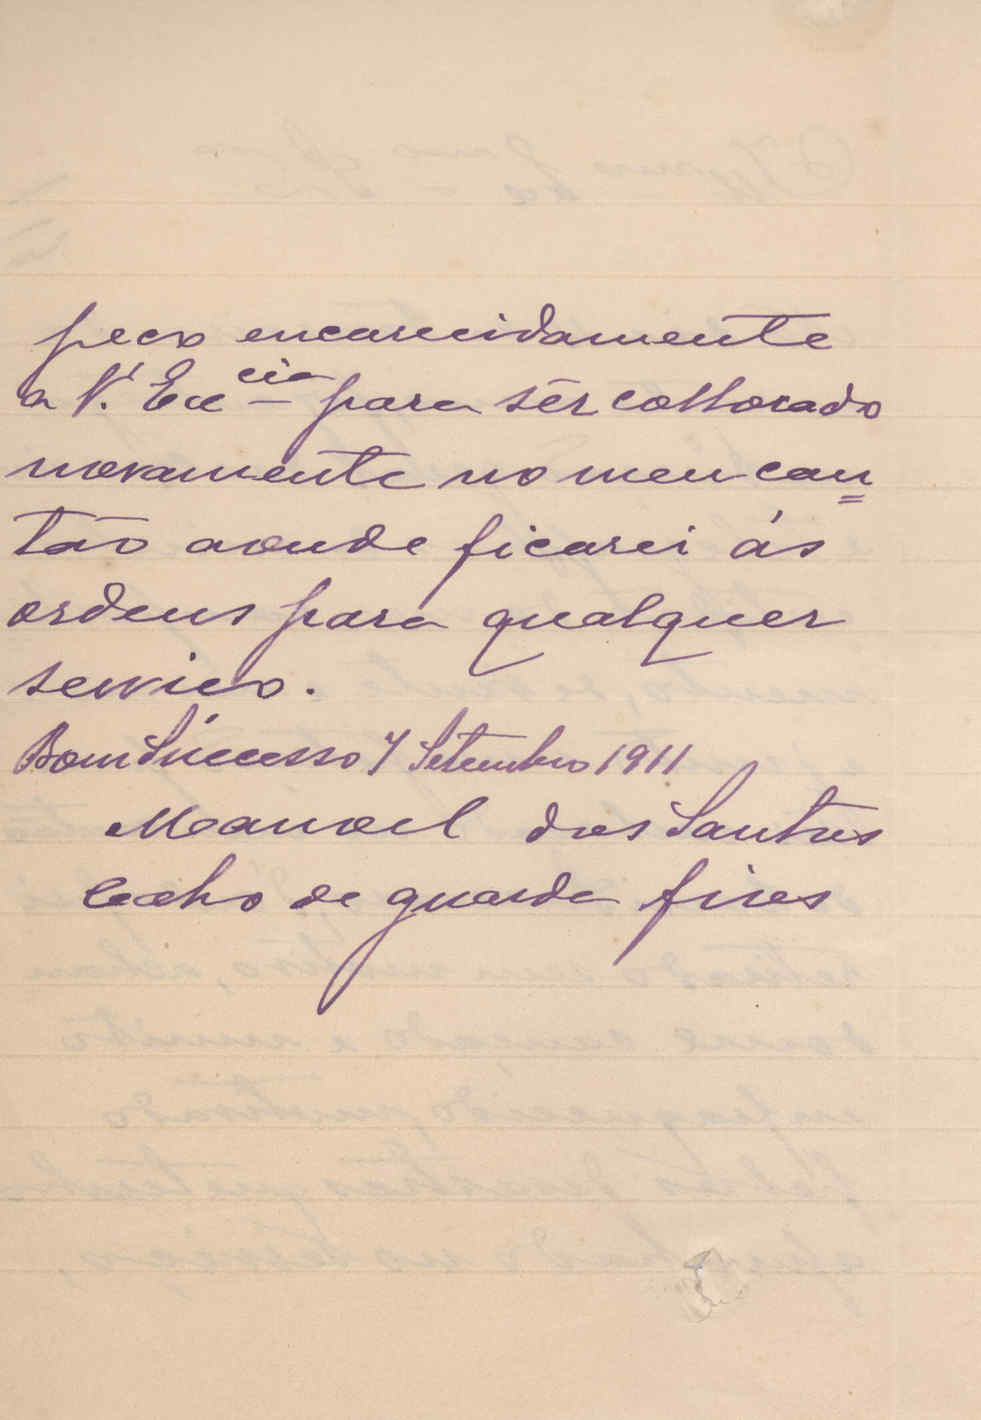 peco encarecidamente
a V. Exc<sup>cia</sup> para sêr collocado
novamente no meu can=
tão aonde ficarei ás
ordens para qualquer
servico.
Bom Súccesso 7 Setembro 1911
Manoel dos Santos
de guarda fios